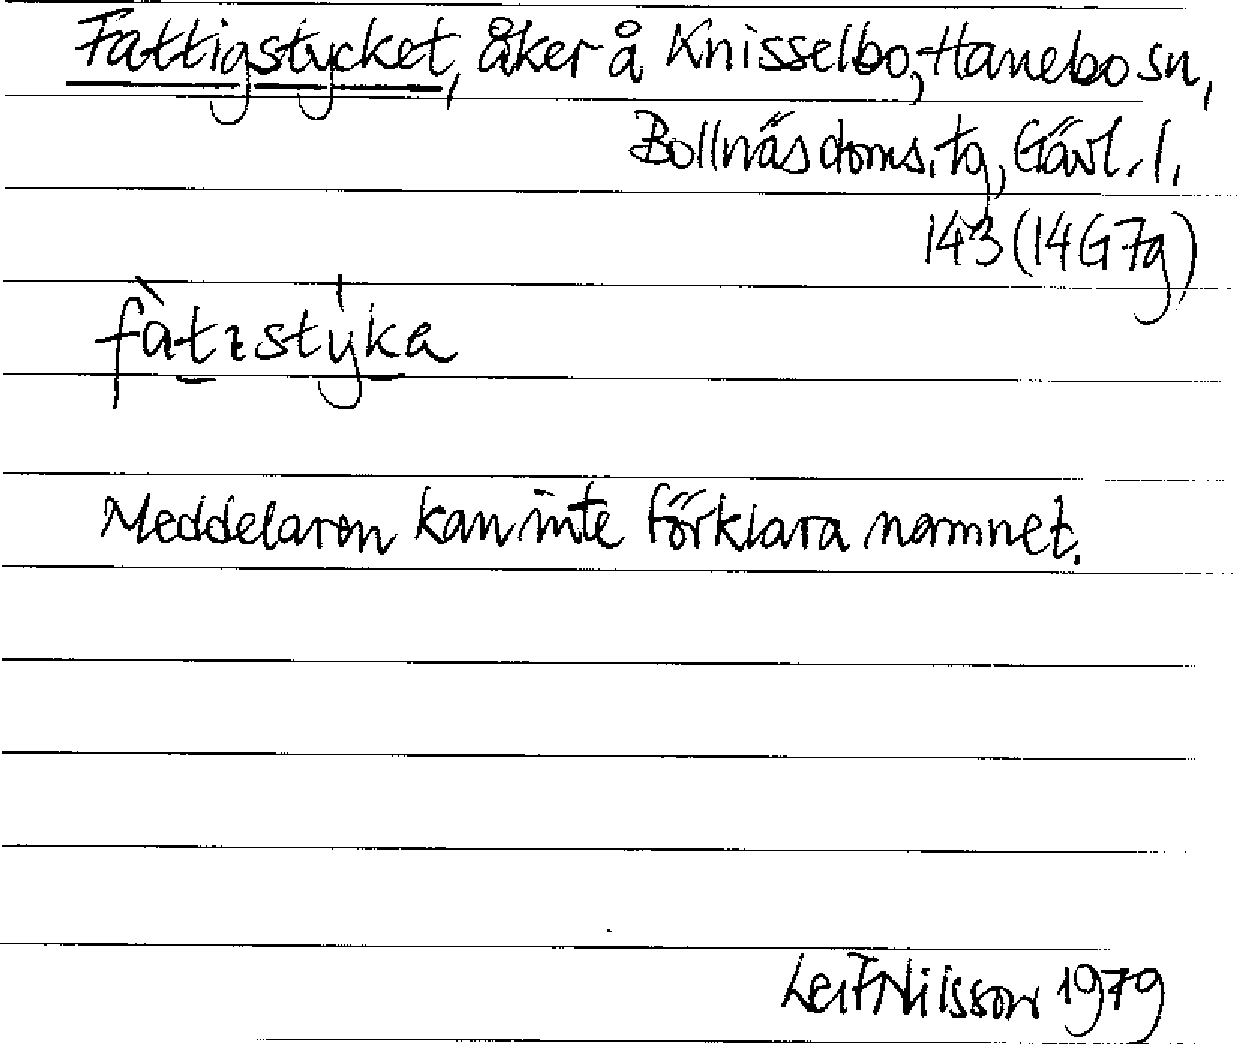 Fattigstycket, åker å Knisselbo, Hanebo sn,
Bollnäs doms. tg, Gävl. l.
143 (14G7g)
fàt̠ɪstýk̠a
Meddelaren kan inte förklara namnet.
Leif Nilsson 1979